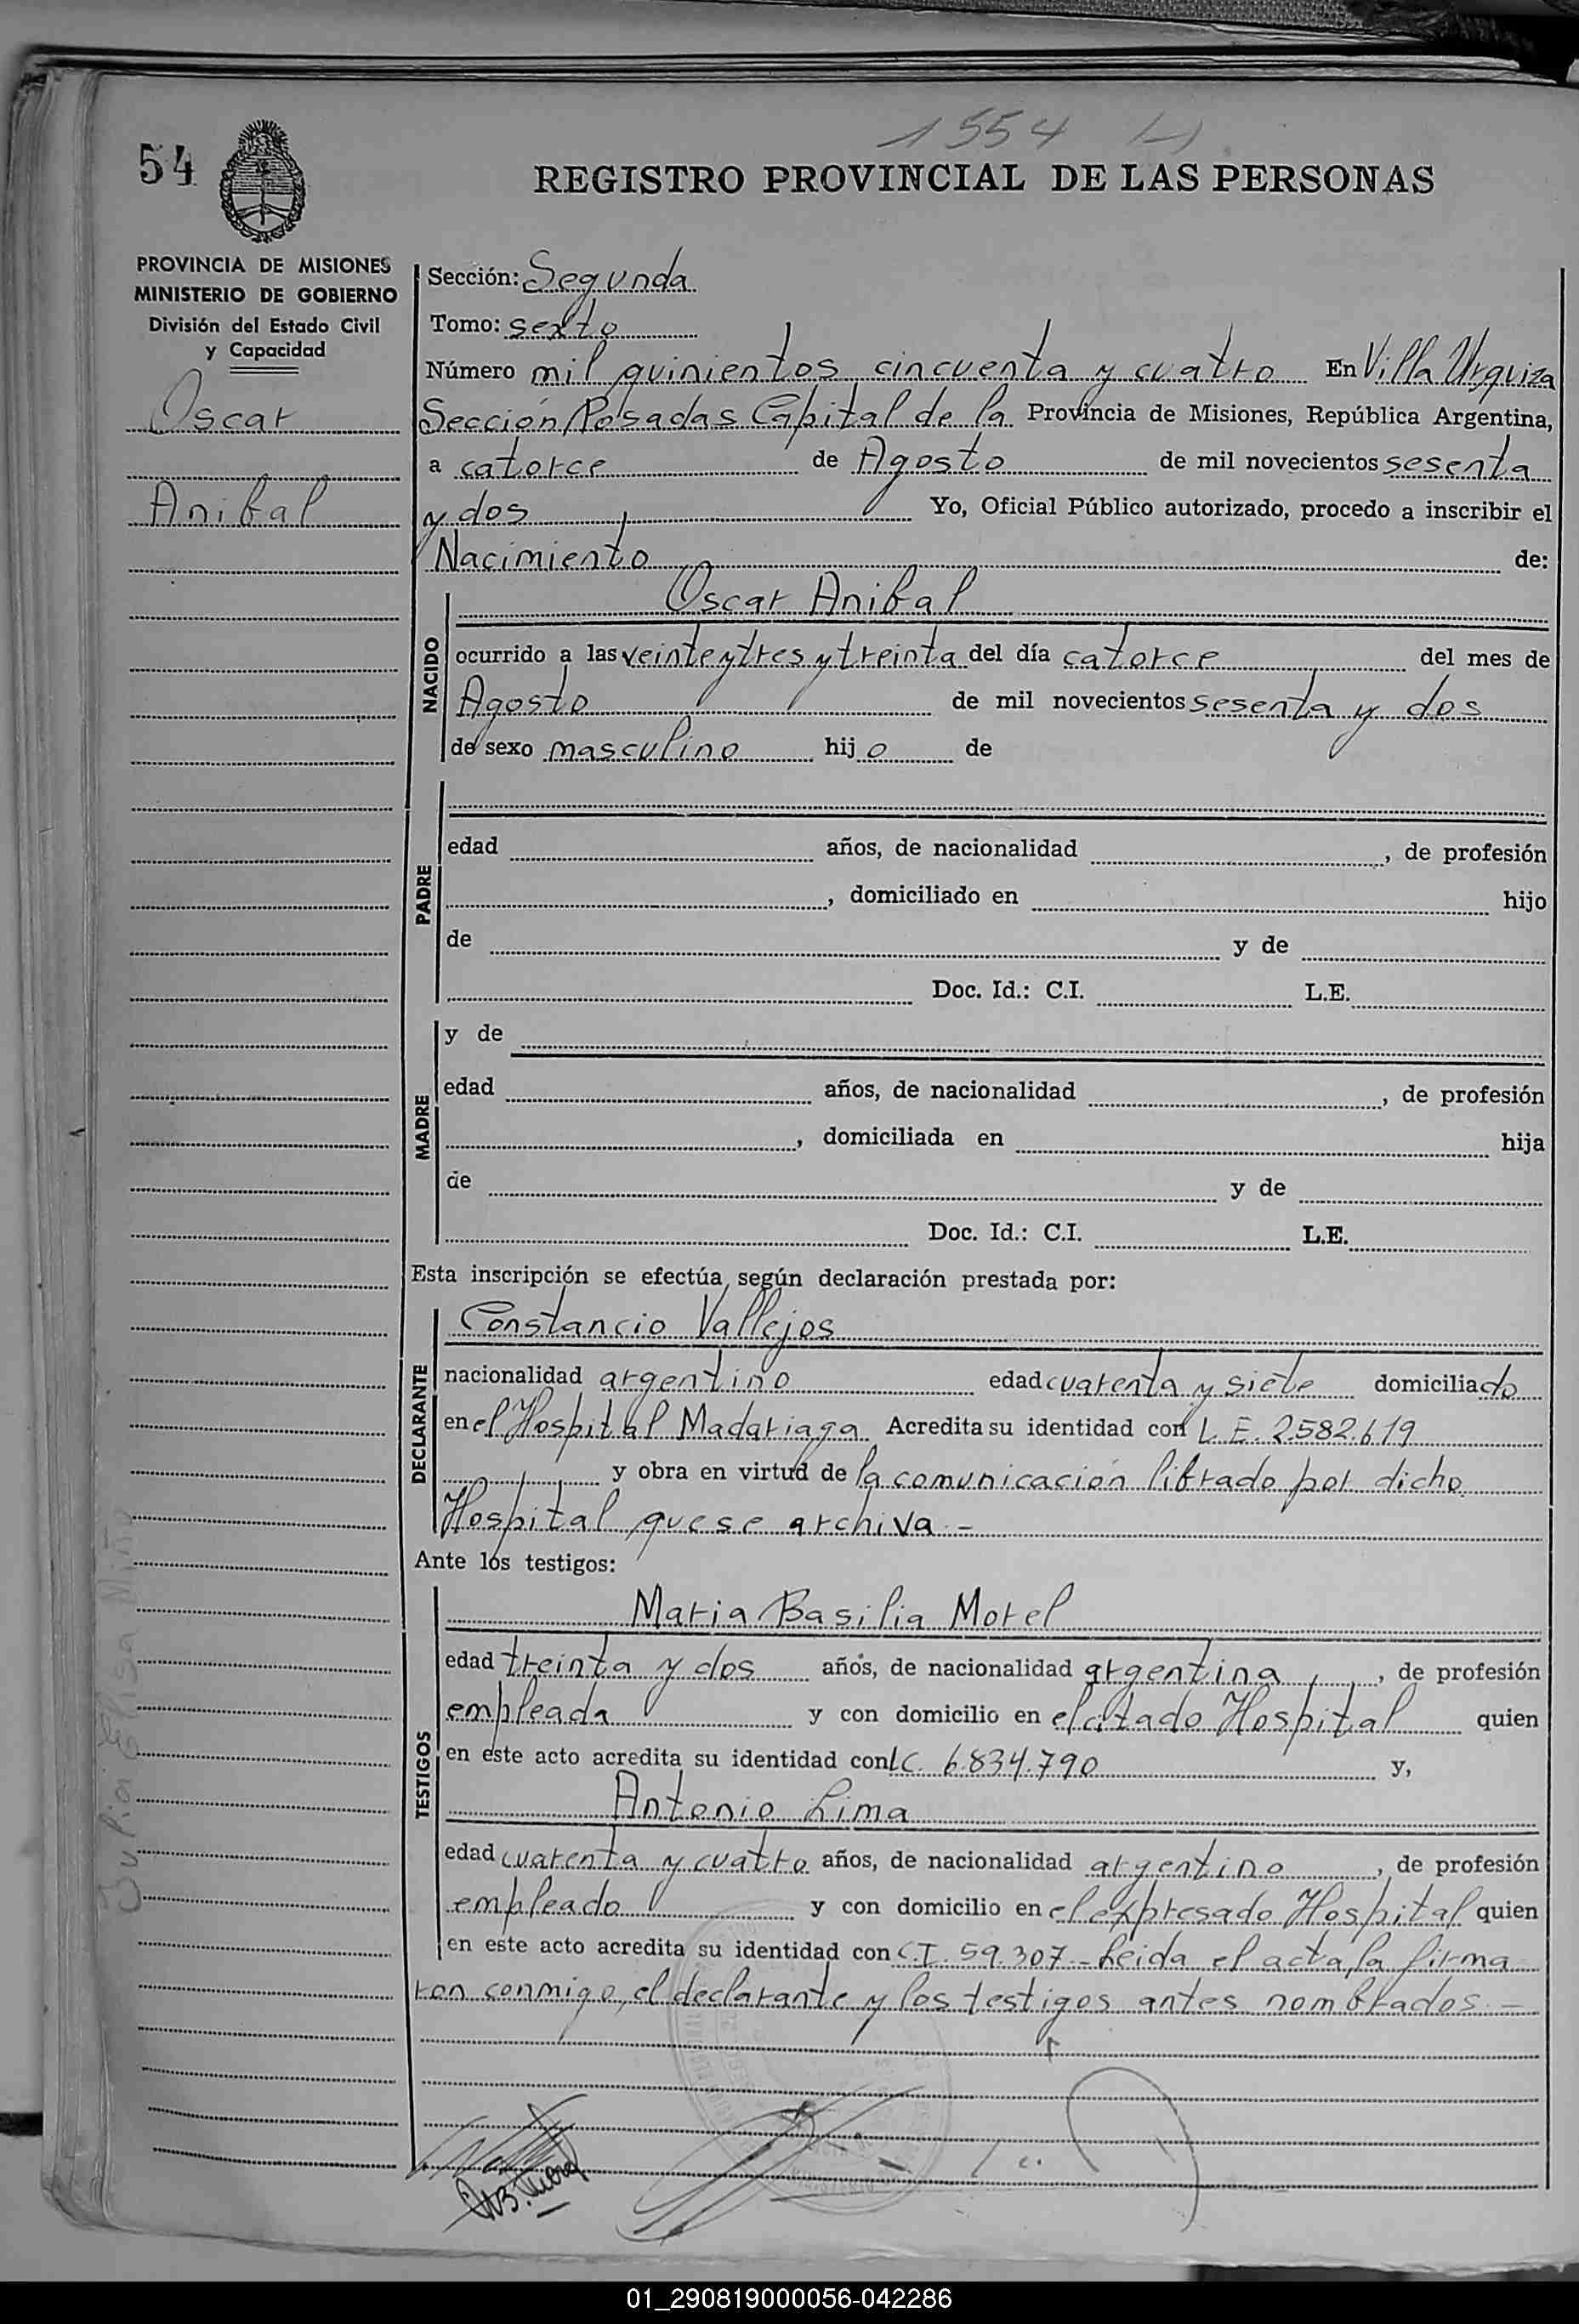 1554
54
REGISTRO PROVINCIAL DE LAS PERSONAS
PROVINCIA DE MISIONES
MINISTERIO DE GOBIERNO
División del Estado Civil
y Capacidad
Oscar
Anibal
Sección: Segunda
Tomo: sexto
Número mil quinientos cincuenta y cuatro En Villa Urquiza
Sección Posadas Capital de la Provincia de Misiones, República Argentina,
a catorce de Agosto de mil novecientos sesenta
y dos Yo, Oficial Público autorizado, procedo a inscribir el
Nacimiento de:
NACIDO
Oscar Anibal
ocurrido a las veinte y tres y treinta del día catorce del mes de
Agosto de mil novecientos sesenta y dos
de sexo masculino hijo de
PADRE
edad años, de nacionalidad , de profesión
, domiciliado en hijo
de y de
Doc. Id.: C.I. L.E.
MADRE
y de
edad años, de nacionalidad , de profesión
, domiciliada en hija
de y de
Doc. Id.: C.I. L.E.
Esta inscripción se efectúa según declaración prestada por:
DECLARANTE
Constancio Vallejos
nacionalidad argentino edad cuarenta y siete domiciliado
en el Hospital Madariaga Acredita su identidad con L.E. 2.582.619
y obra en virtud de la comunicación librado por dicho
Hospital que se archiva.-
Ante los testigos:
TESTIGOS
Maria Basilia Morel
edad treinta y dos años, de nacionalidad argentina, de profesión
empleada y con domicilio en el citado Hospital quien
en este acto acredita su identidad con LC. 6.834.790 y,
Antonio Lima
edad cuarenta y cuatro años, de nacionalidad argentino, de profesión
empleado y con domicilio en el expresado Hospital quien
en este acto acredita su identidad con C.I. 59.307.- Leida el acta, la firma
ron conmigo, el declarante y los testigos antes nombrados.-
01_290819000056-042286